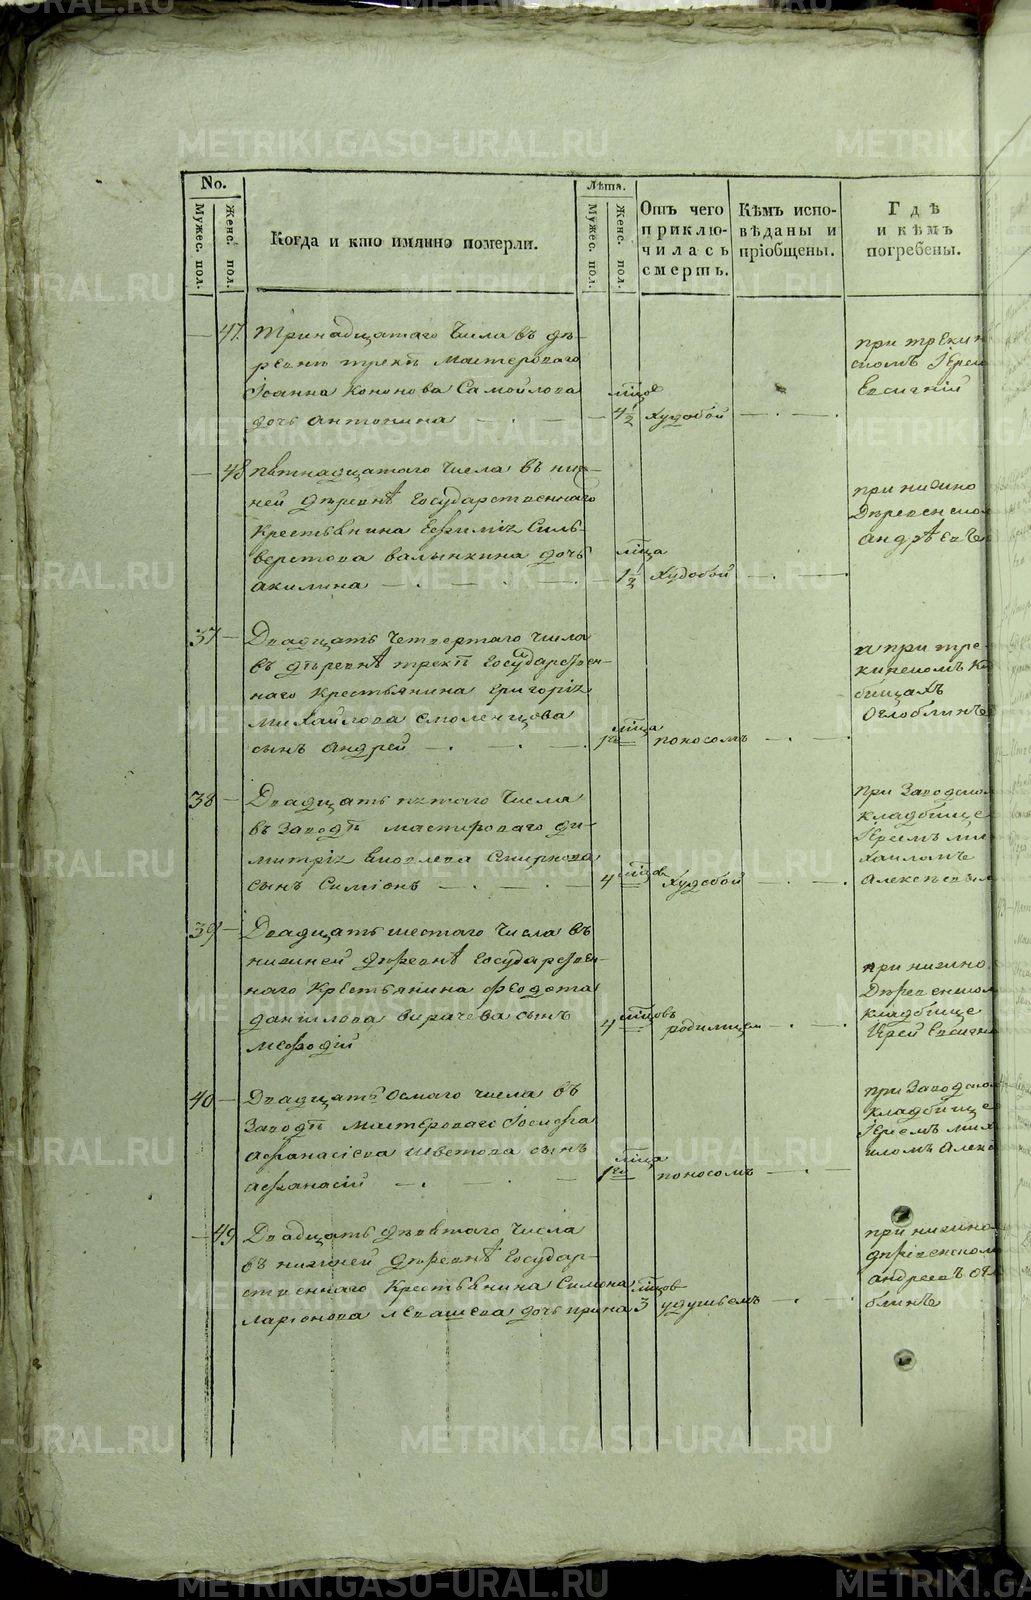 No.
Мужес. пол.
Женс. пол.
Когда и кто имянно померли.
Лѣта.
Мужес. пол.
Женс. пол.
Отъ чего приклю-
чилась смерть.
Кѣмъ испо-
вѣданы и
пріобщены.
Гдѣ
и кѣмъ
погребены.
— 47 Тринадцатаго числа въ де-
ревнѣ трекѣ Мастероваго
Іоанна Кононова Самойлова
дочь Антонина
4½ худобой
при трекин
скомъ Іерей
Евсигній
— 48 пятнадцатаго числа въ ниж-
ней деревнѣ Государственнаго
Крестьянина Ефиміа Силь-
верстова валынкина дочь
акилина
мѣца
1½ худобой
при нижно
Деревенско
андрѣевъ
37 — Двадцать четвертаго числа
въ деревнѣ трекѣ Государствен-
наго Крестьянина Григоріа
Михайлова смоленцова
сынъ андрей
мѣца
1го поносомъ
при тре-
кинскомъ Кла
бищахъ
Оглоблинъ
38 — Двадцать пятаго числа
въ Заводѣ мастероваго ди-
митріа Яковлева Смирнова
сынъ Симіонъ
4 мѣцов худобой
при Заводско
кладбище
Іереемъ ми
хаиломъ
Алексѣевым
39 — Двадцать шестаго числа въ
нижней деревнѣ Государствен-
наго Крестьянина Феодота
даніилова вирачева сынъ
Мефодій
4 мѣцовъ родимцем
при нижно
Деревенском
кладбище
Іерей Евсигній
40 — Двадцать осмаго числа въ
Заводѣ мастероваго Іосифа
афанасіева цветова сынъ
афанасій
мѣца
1го поносомъ
при Заводско
кладбище
Іереемъ миха
иломъ Алекс
— 49 Двадцать девятаго числа
въ нижней деревнѣ Государ-
ственнаго Крестьянина Симона
Ларіонова Левашева дочь ирина
мѣцов
3 удушьемъ
при нижно
деревенском
андреевъ ог
блинъ
METRIKI.GASO-URAL.RU